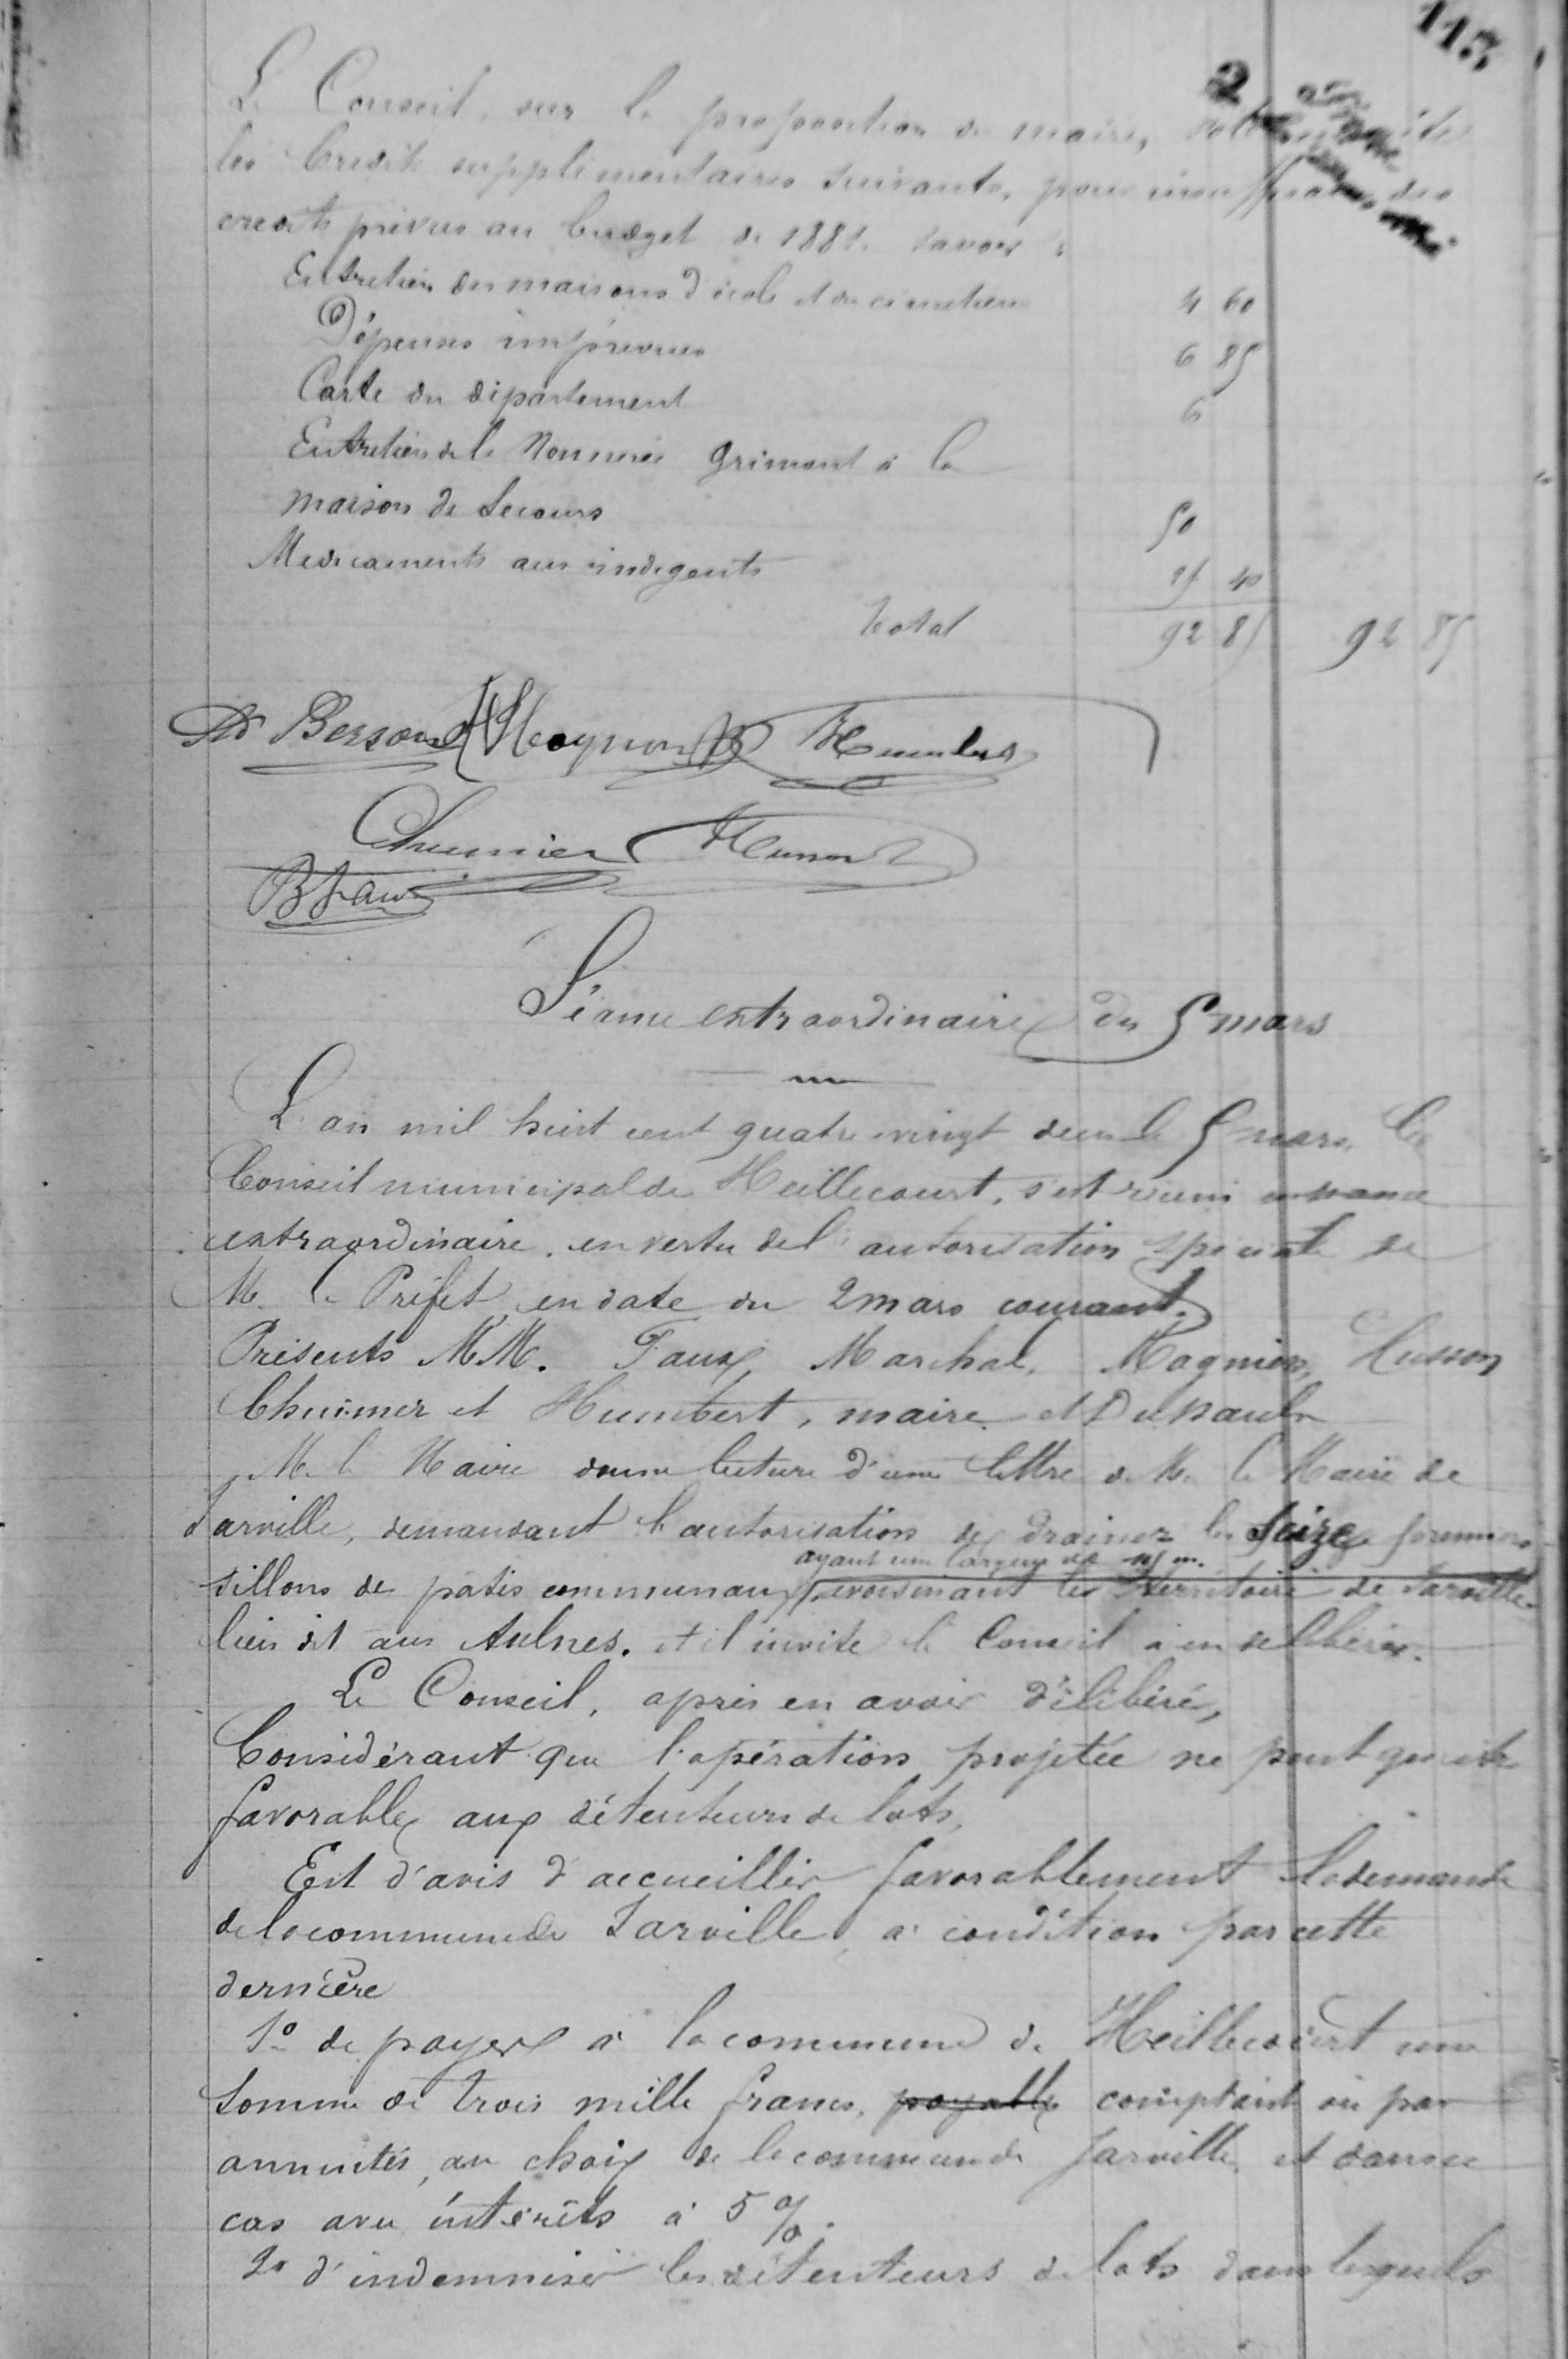 113
Le Conseil, sur la proposition du maire,
les Crédits supplémentaires suivants, pour insuffisance des
crédits prévus au budget de 1881. savoir :
Entretien des maisons d'école et du cimetière 4 60
Dépenses imprévues 6 85
Carte du département 6
Entretien de la nommée Grimont à la
maison de Secours 50
Médicaments aux indigents 25 40
Total 92 85 92 85
Ch Bersond Magnon Humbert
Chuimer Husson
B Faux
Séance extraordinaire du 5 mars
L'an mil huit cent quatre vingt deux le 5 mars, Le
Conseil municipal de Heillecourt, s'est réuni en séance
extraordinaire, en vertu de l'autorisation spéciale de
M. le Préfet en date du 2 mars courant.
Présents MM. Faux, Marchal, Magnien, Husson
Chuimer et Humbert, maire et Dukaulx
M. le Maire donne lecture d'une lettre de M. le Maire de
Jarville, demandant l'autorisation de drainer les seize premiers
ayant une largeur de m.
sillons de pâtis communaux avoisinant le territoire de Jarville
lieu dit aux Aulnes. et il invite le Conseil à en délibérer.
Le Conseil, après en avoir délibéré,
Considérant que l'opération projetée ne peut qu'être
favorable aux détenteurs de lots,
Est d'avis d'accueillir favorablement la demande
de la commune de Jarville, à condition par cette
dernière
1º de payer à la commune de Heillecourt une
Somme de trois mille francs, payable comptant ou par
annuités, au choix de la commune de Jarville, et dans ce
cas avec intérêts à 5 %.
2º d'indemniser les détenteurs de lots dans lesquels